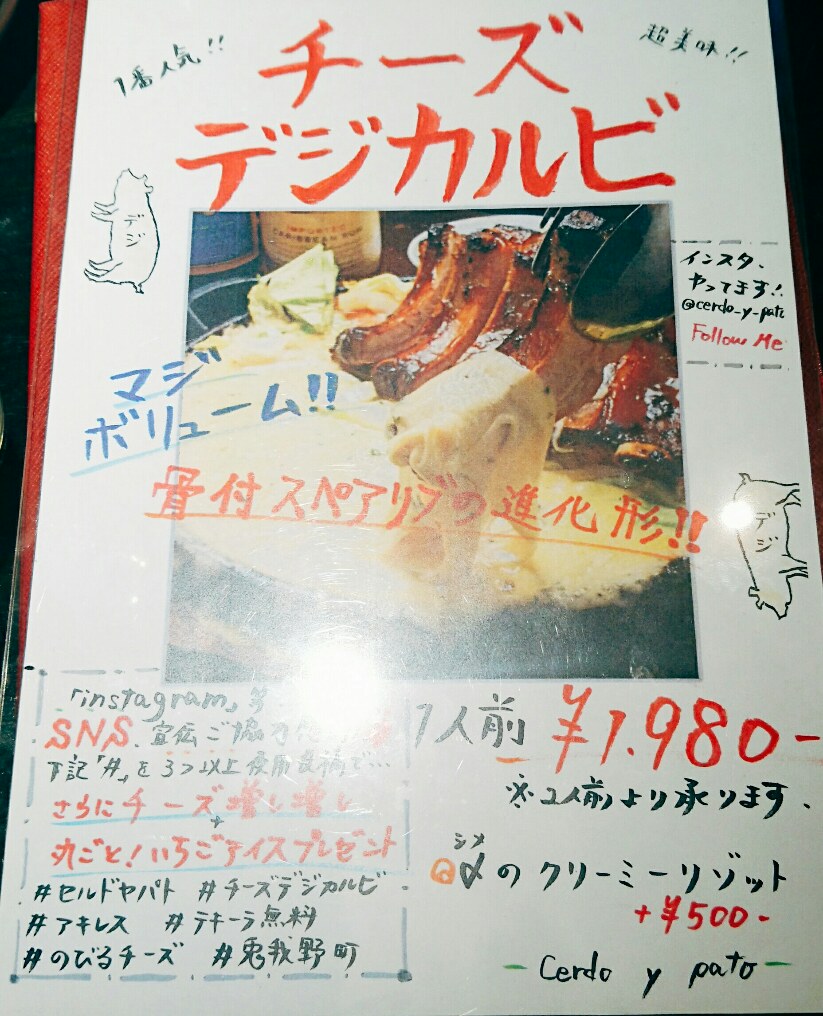 1番人気!!
超美味!!
チーズ
デジカルビ
デジ
インスタ、
やってます!!
@cerdo_y_pato
Follow Me
マジ
ボリューム!!
骨付スペアリブの進化形!!
デジ
「instagram」等
SNS、宣伝ご協力
下記「#」を3つ以上使用投稿で…
さらにチーズ増し増し
+
丸ごと!いちごアイスプレゼント
#セルドヤパト #チーズデジカルビ
#アキレス #テキーラ無料
#のびるチーズ #兎我野町
1人前 ¥1.980-
※2人前より承ります。
シメ
@〆のクリーミーリゾット
+¥500-
-Cerdo y pato-